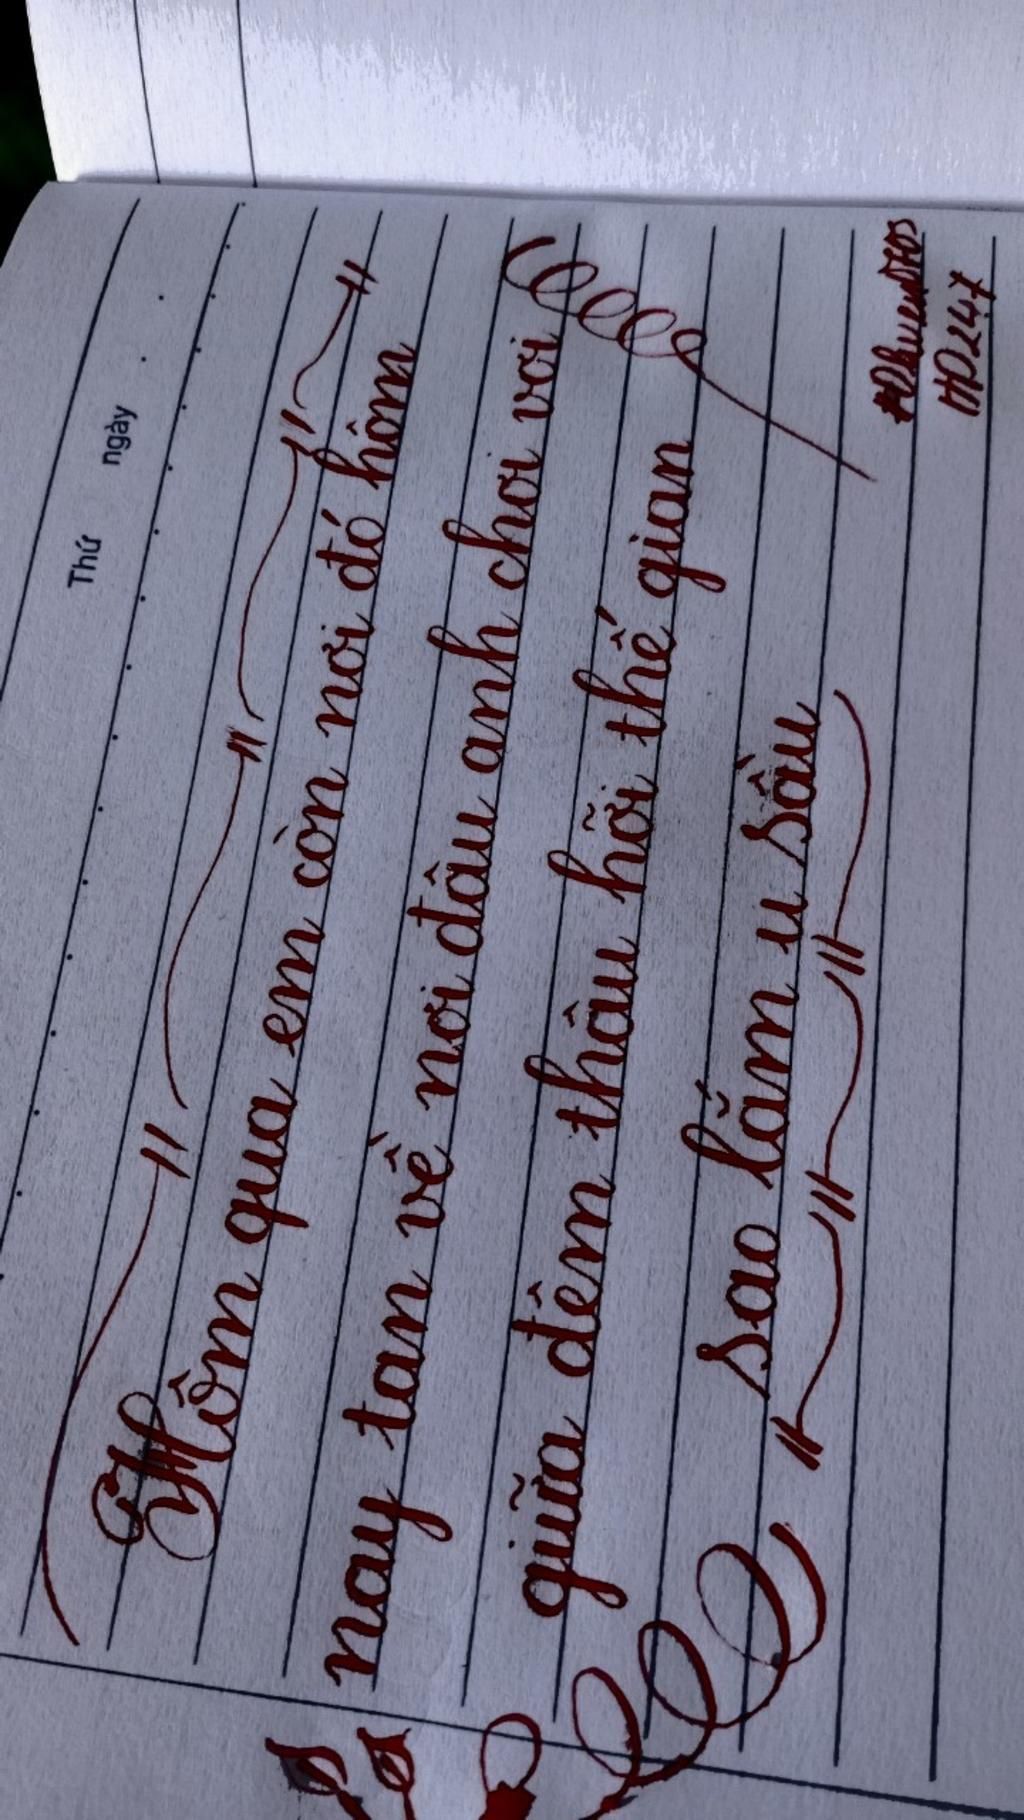 Thứ ngày
Hôm qua em còn nơi đó hôm
nay tan về nơi đâu anh chơi vơi
giữa đêm thâu hỡi thế gian
sao lắm u sầu